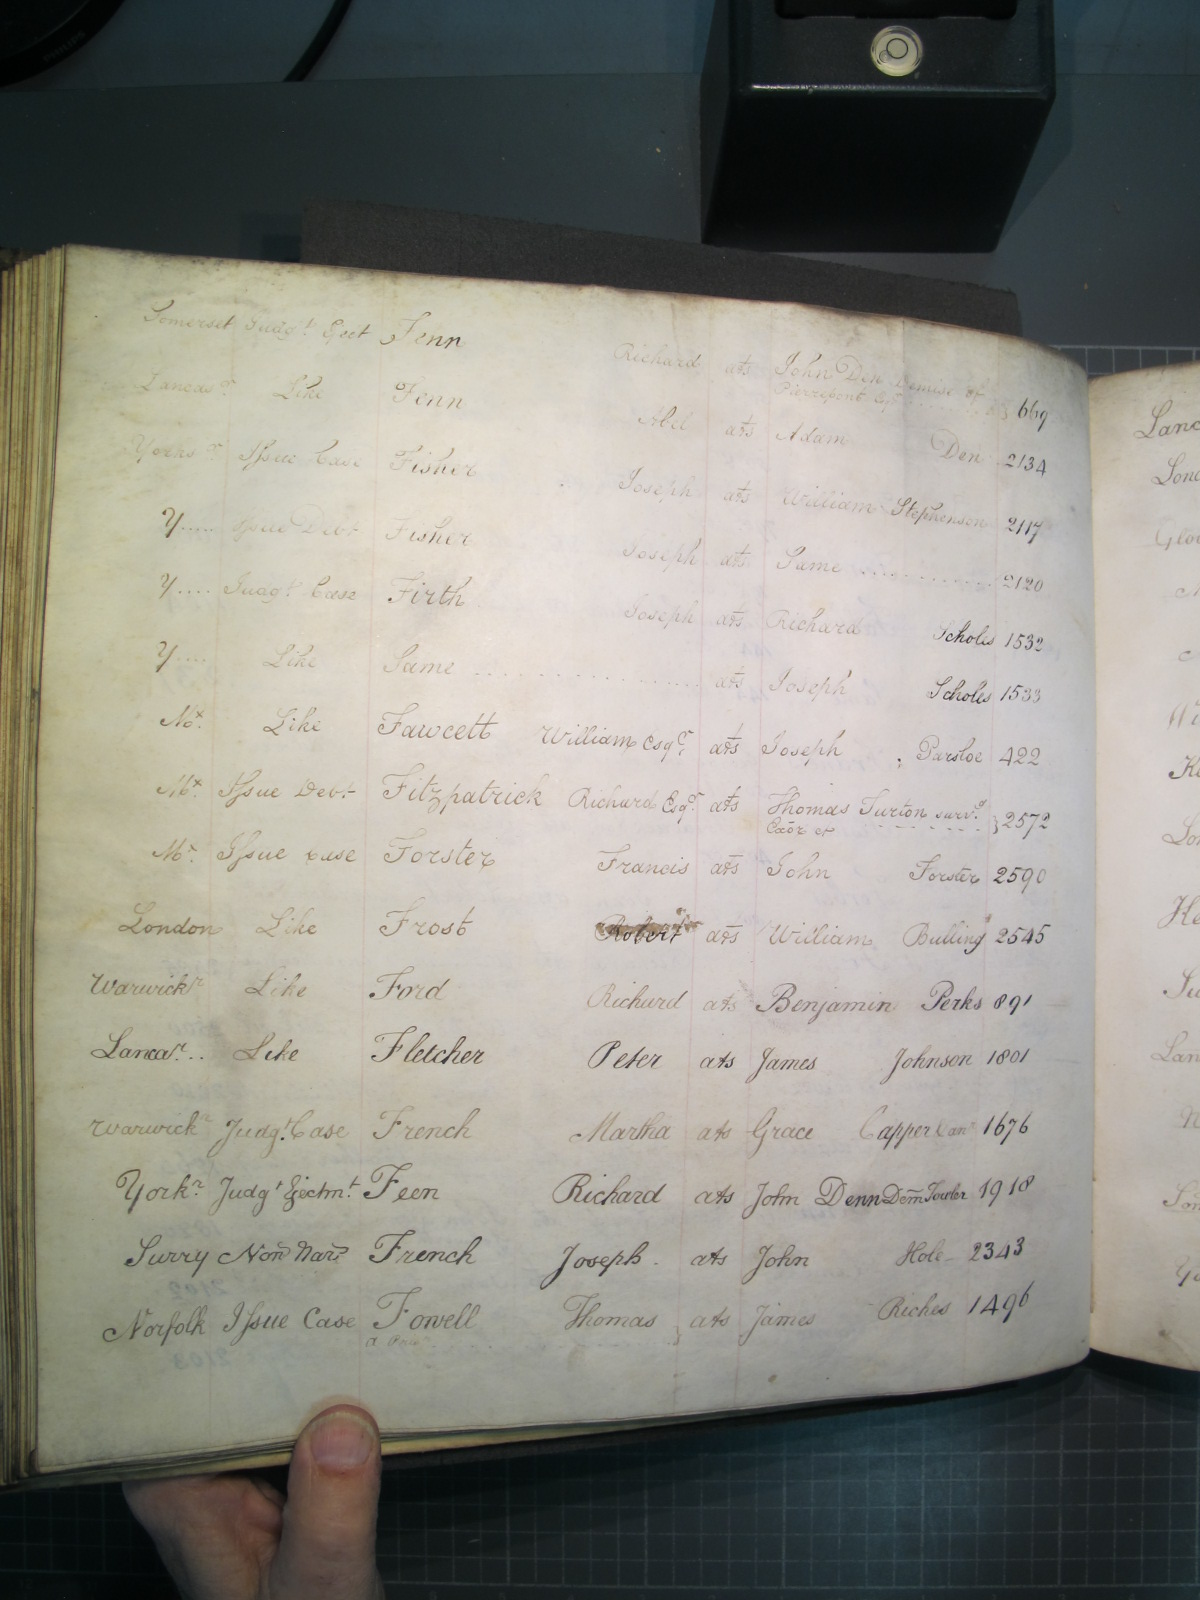 PHILIPS
Somerset Judgt. Eject Fenn Richard ats John Den Demise of
Pierrepont Esqr. 669
Lancasr. Like Fenn Abel ats Adam Den 2134
Yorks r. Issue Case Fisher Joseph ats William Stephenson 2117
Y.... Issue Debt Fisher Joseph ats Same .......... 2120
Y.... Judgt. Case Firth Joseph ats Richard Scholes 1532
Y.... Like Same .......... ats Joseph Scholes 1533
Mx. Like Fawcett William Esqr. ats Joseph Parsloe 422
Mx. Issue Debt Fitzpatrick Richard Esqr. ats Thomas Turton survg.
Caõr et .......... } 2572
Mx. Issue Case Forster Francis ats John Forster 2590
London Like Frost Robert ats William Bulling 2545
Warwickr. Like Ford Richard ats Benjamin Perks 891
Lancar. .. Like Fletcher Peter ats James Johnson 1801
Warwickr Judgt. Case French Martha ats Grace Capper 1676
Yorkr. Judgt Ejectmt. Feen Richard ats John Denn Dem Fowler 1918
Surry Non Narr French Joseph. ats John Hole 2343
Norfolk Issue Case Fowell Thomas ats James Riches 1496
Lanc
Lond
Glou